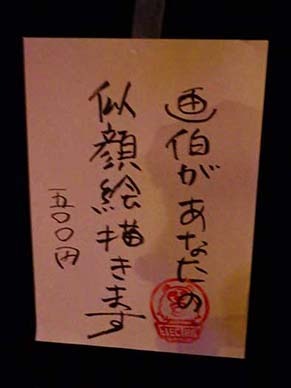 画伯があなたの
似顔絵描きます
五〇〇円
ELECTRIC